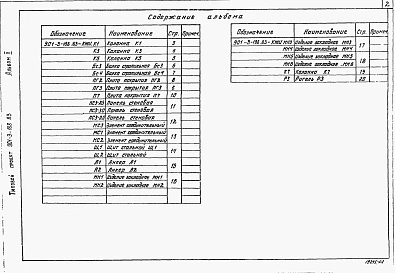 2
Содержание альбома
Обозначение Наименование Стр. Примеч.
901-3-193.83-КЖИ.К1 Колонна К1 3
К3 Колонна К3 4
К5 Колонна К5 5
Бс3 Балка стропильная Бс3 6
Бс4 Балка стропильная Бс4 7
ПГ2 Плита покрытия ПГ2 8
ПГ3 Плита покрытия ПГ3 9
П7 Плита покрытия П7 10
Панель стеновая
Панель стеновая 11
Панель стеновая
МС3 Элемент соединительный 12
МС1 Элемент соединительный
МС2 Элемент соединительный 13
Щ1 Щит стальной Щ1
Щ2 Щит стальной 14
А1 Анкер А1
А2 Анкер А2 15
МН1 Изделие закладное МН1
МН2 Изделие закладное МН2 16
Обозначение Наименование Стр. Примеч.
901-3-193.83-КЖИ.МН3 Изделие закладное МН3
МН4 Изделие закладное МН4 17
МН5 Изделие закладное МН5
МН6 Изделие закладное МН6 18
К1 Колонна К1 19
Р3 Ригель Р3 20
Типовой проект 901-3-193.83
Альбом